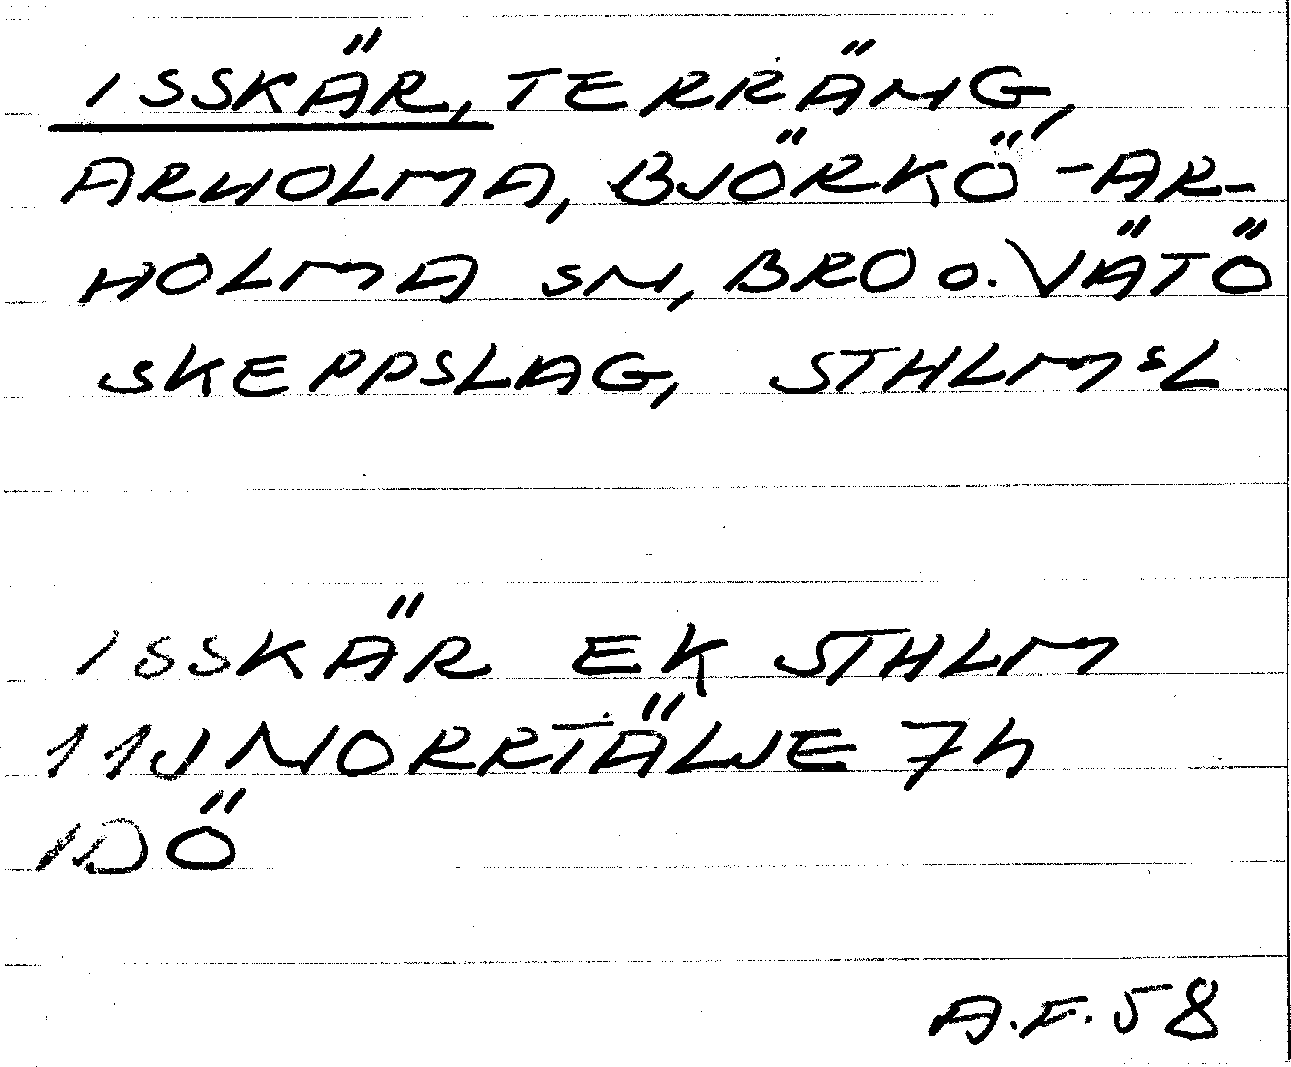 ISSKÄR, TERRÄNG,
ARHOLMA, BJÖRKÖ-AR-
HOLMA SN, BRO O. VÄTÖ
SKEPPSLAG, STHLMSL
ISSKÄR EK STHLM
11J NORRTÄLJE 7h
IDÖ
A.F.58